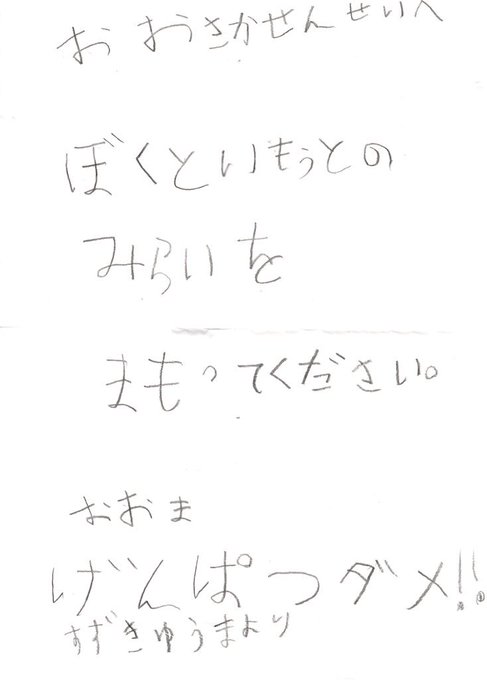 おおうさかせんせいへ
ぼくといもうとの
みらいを
まもってください。
おおま
げんぱつダメ!!
すずきゆうまより